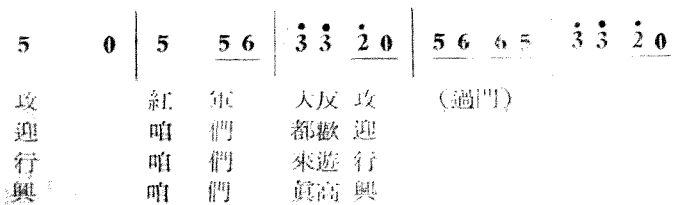 5 0 | 5 56 | 3̇3̇ 2̇0 | 56 65 3̇3̇ 2̇0
攻 紅 軍 大反 攻 (過門)
迎 咱 們 都歡 迎
行 咱 們 來遊 行
興 咱 們 眞高 興